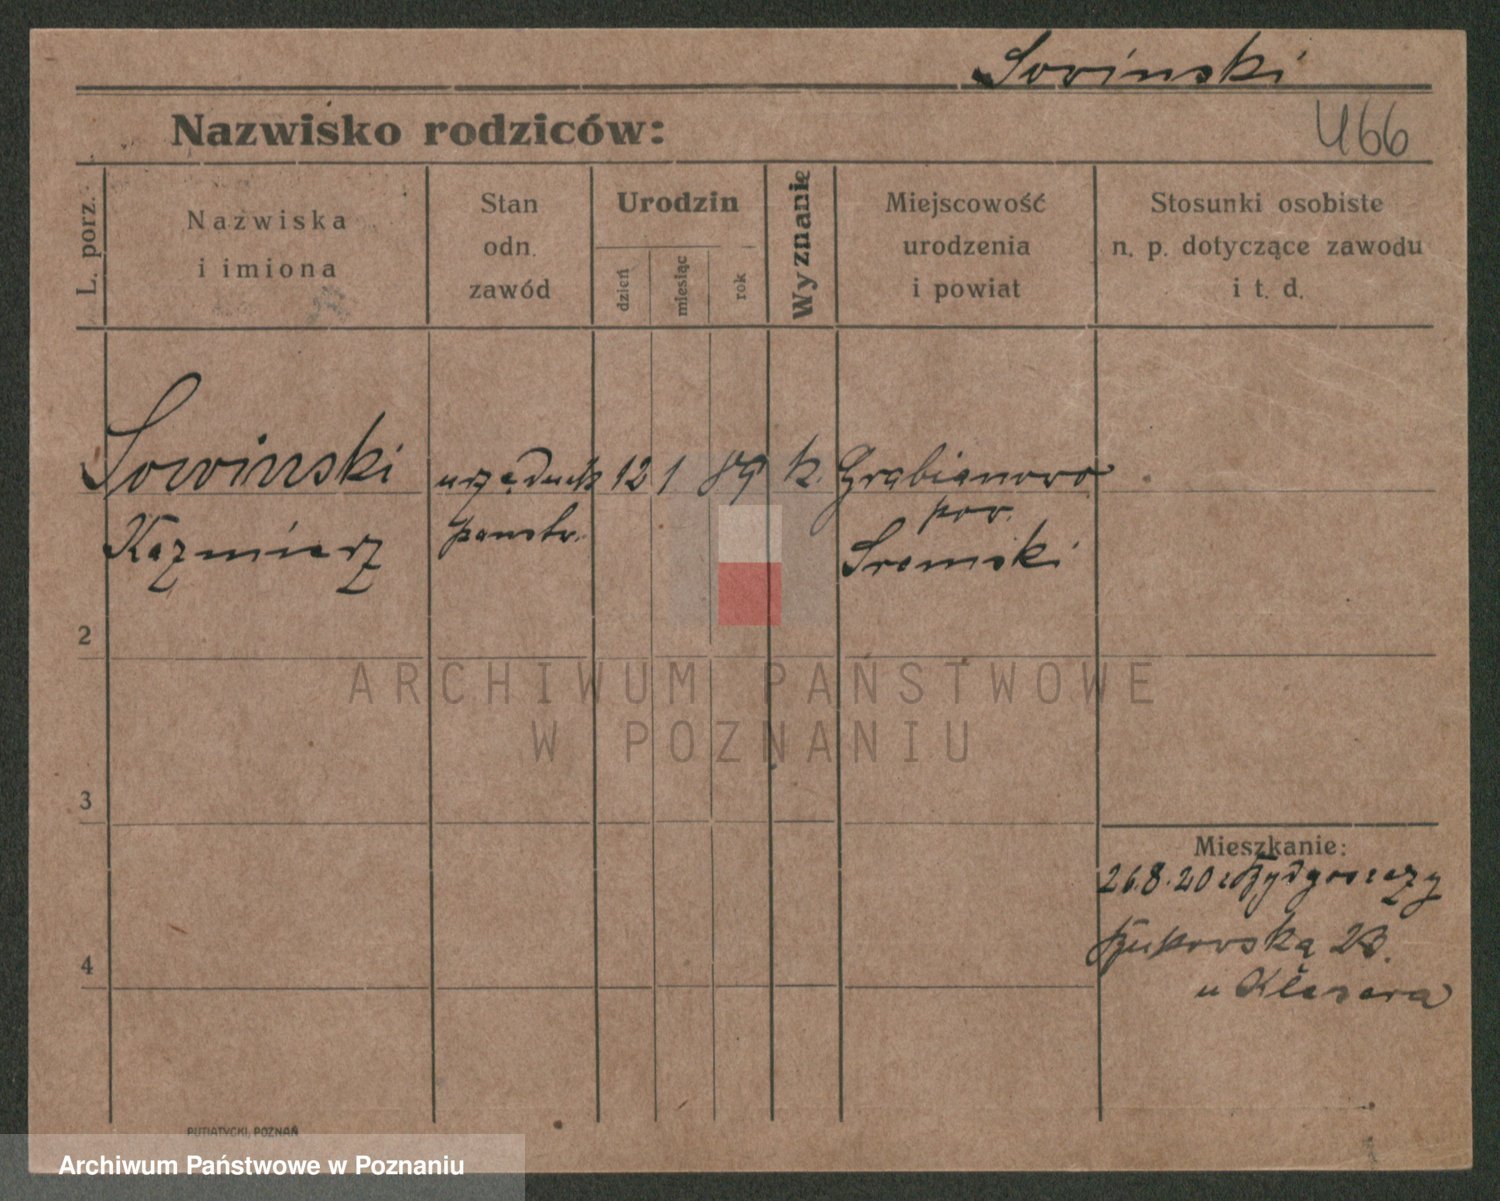 Sowinski
466
Nazwisko rodziców:
L. porz.
Nazwiska
i imiona
Stan
odn.
zawód
Urodzin
dzień
miesiąc
rok
Wyznanie
Miejscowość
urodzenia
i powiat
Stosunki osobiste
n. p. dotyczące zawodu
i t. d.
Sowinski urzędnik 12 1 89 k. Grabianowo
Kazmierz państw. pow.
Sremski
2
ARCHIWUM PAŃSTWOWE
W POZNANIU
3
Mieszkanie:
26.8.20 z Bydgoszczy
Bukowska 23.
4
u
PUTIATYCKI, POZNAŃ
Archiwum Państwowe w Poznaniu